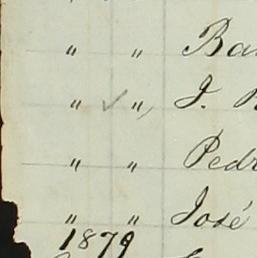 " " Ba
" ✓ " J.
" " Ped
" " José
1879